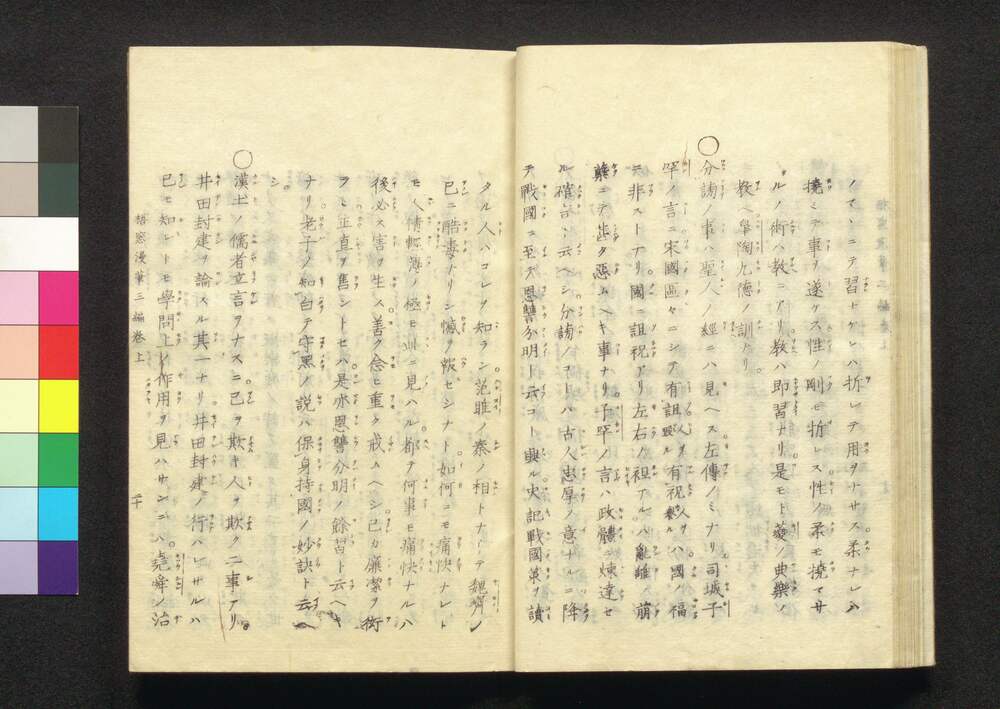 ノマヽニテ習ナケレハ折レテ用ヲナサス柔ナレハ
撓ミテ事ヲ遂ケス性ノ剛モ折レス性ノ柔モ撓マサ
ルノ術ハ教ニアリ教ハ即習ナリ是モト夔ノ典樂ノ
教ヘ皐陶九德ノ訓ナリ
〇分謗ノ事ハ聖人ノ經ニハ見ヘス左傳ノミナリ司城子
罕ノ言ニ宋國區々ニシテ有詛人ヲ毀ル有祝人ヲ譽ルハ國ノ福
ニ非ストアリ國ニ詛祝アリ左右ノ袒アルハ亂離ノ崩
ニテ甚タ惡ムヘキ事ナリ子罕ノ言ハ政體ニ煉達セ
ル確言ト云ヘシ分謗ノコトハ古人忠厚ノ意ナルニ降
テ戰國ニ至テ恩讐分明ト云コト興ル史記戰國策ヲ讀
タル人ハコレヲ知ラン范雎ノ秦ノ相トナリテ魏齊ノ
已ニ酷毒ナリシ憾ヲ報セシナト如何ニモ痛快ナレト
モ人情輕薄ノ極モ亦見ハル都テ何事モ痛快ナルハ
後必ス害ヲ生ス善ク念ヒ重ク戒ムヘシ己カ廉潔ヲ衒
ヒ正直ヲ售ントセハ是亦恩讐分明ノ餘習ト云ヘキ
ナリ老子ノ知白テ守黑ノ説ハ保身持國ノ妙訣ト云ヘ
シ
〇漢土ノ儒者立言ヲナスニ己ヲ欺キ人ヲ欺ク二事アリ
井田封建ヲ論スル其一ナリ井田封建ノ行ハレサルハ
己モ知レトモ學問上ノ作用ヲ見ハサンニハ堯舜ノ治
梧窓漫筆三編卷上